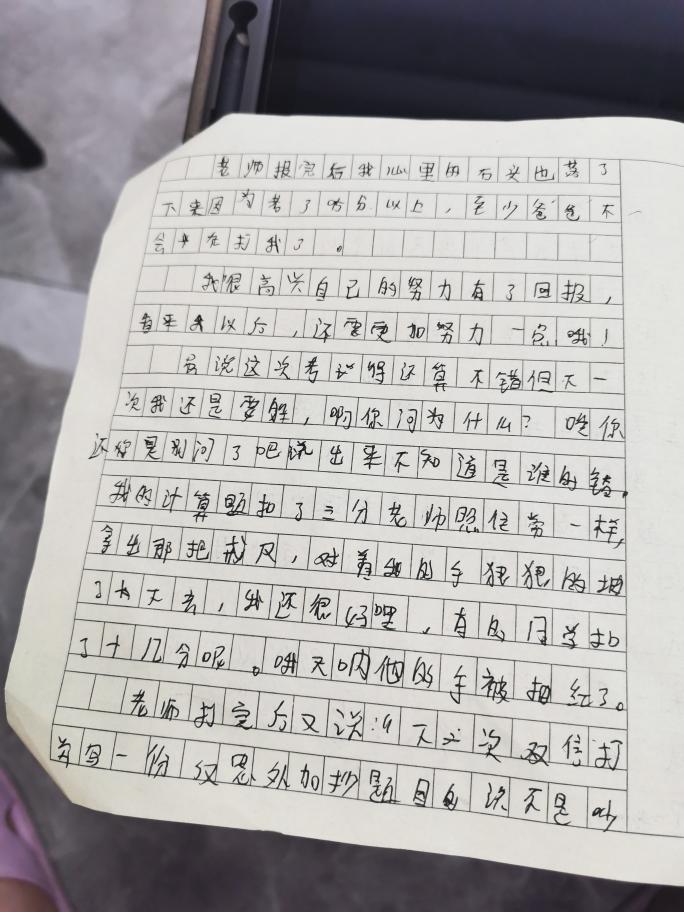 老师报完后我心里的石头也落了
下来因为考了分以上，至少爸爸不
会在打我了。
我很高兴自己的努力有了回报，
以后，还需要更加努力一点哦！
虽说这次考试得还算不错但下一
次我还是要，啊你问为什么？哎你
还你是别问了吧说出来不知道是谁的错。
我的计算题扣了三分老师照往常一样，
拿出那把戒尺，对着我的手狠狠的抽
了下去，我还很好哩，有的同学扣
了十几分呢。哦天呐他的手被抽红了。
老师打完后又说：“下次双倍打
写一份反思外加抄题目